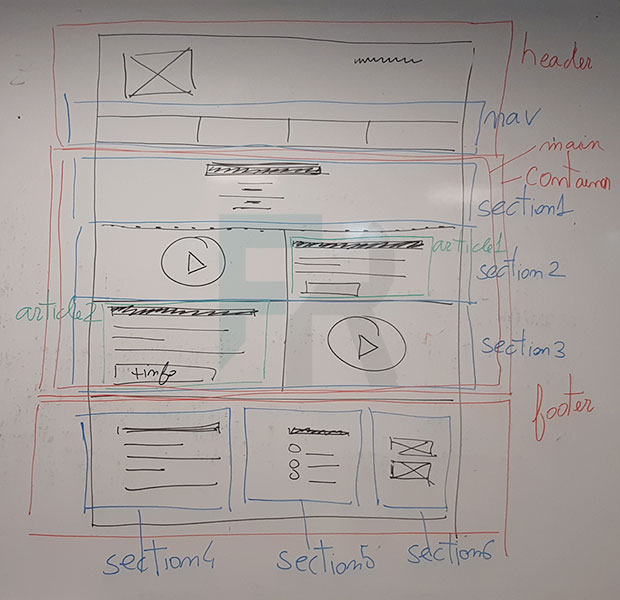 header
nav
main
container
section1
article1
section2
article2
section3
+info
footer
section4
section5
section6